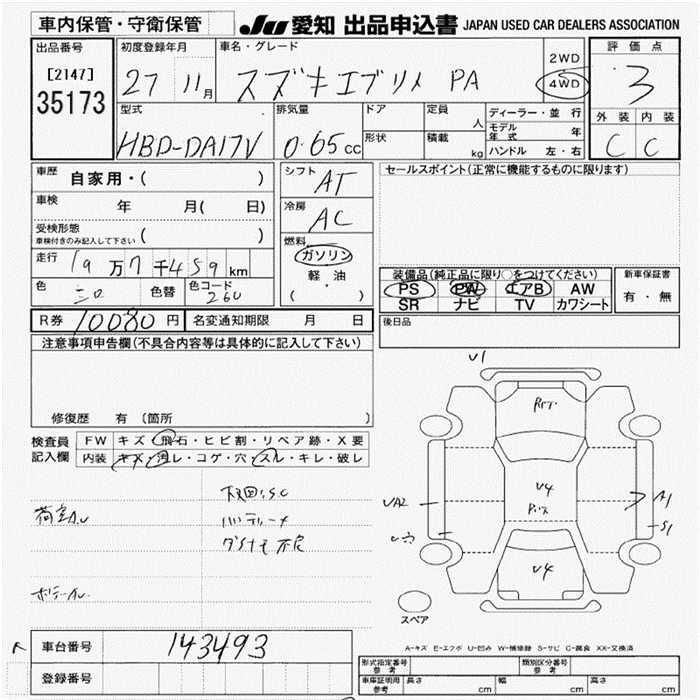 車内保管・守衛保管
JU 愛知 出品申込書 JAPAN USED CAR DEALERS ASSOCIATION
出品番号 初度登録年月 車名・グレード 2WD 評価点
[2147] 27 11月 スズキエブリィ PA 4WD 3
35173
型式 排気量 ドア 定員 人 ディーラー・並行 外装 内装
モデル年式 年
HBD-DA17V 0.65cc 形状 積載 kg ハンドル 左・右 C C
車歴 自家用・( ) シフト AT セールスポイント(正常に機能するものに限ります)
車検 年 月( 日) 冷房 AC
受検形態
車検付きのみ記入して下さい ( ) 燃料
走行 19万7千459km ガソリン
色 色替 色コード 260 軽油
(・)
装備品(純正品に限り○をつけてください) 新車保証書
PS PW エアB AW 有・無
SR ナビ TV カワシート
R券 10080円 名変通知期限 月 日 後日品
注意事項申告欄(不具合内容等は具体的に記入して下さい)
修復歴 有 〔箇所
検査員 FW キズ・飛石・ヒビ割・リペア跡・X要
記入欄 内装 キズ・汚レ・コゲ・穴・スレ・キレ・破レ
荷室A.U
バッテリー
不良
U1
U4
UA2
A1
S1
U4
スペア
A-キズ E-エクボ U-凹み W-補修跡 S-サビ C-腐食 XX-交換済
車台番号 143493
登録番号
形式指定番号 参考 類別区分番号 参考
車庫証明用 参考 長さ cm 幅 cm 高さ cm